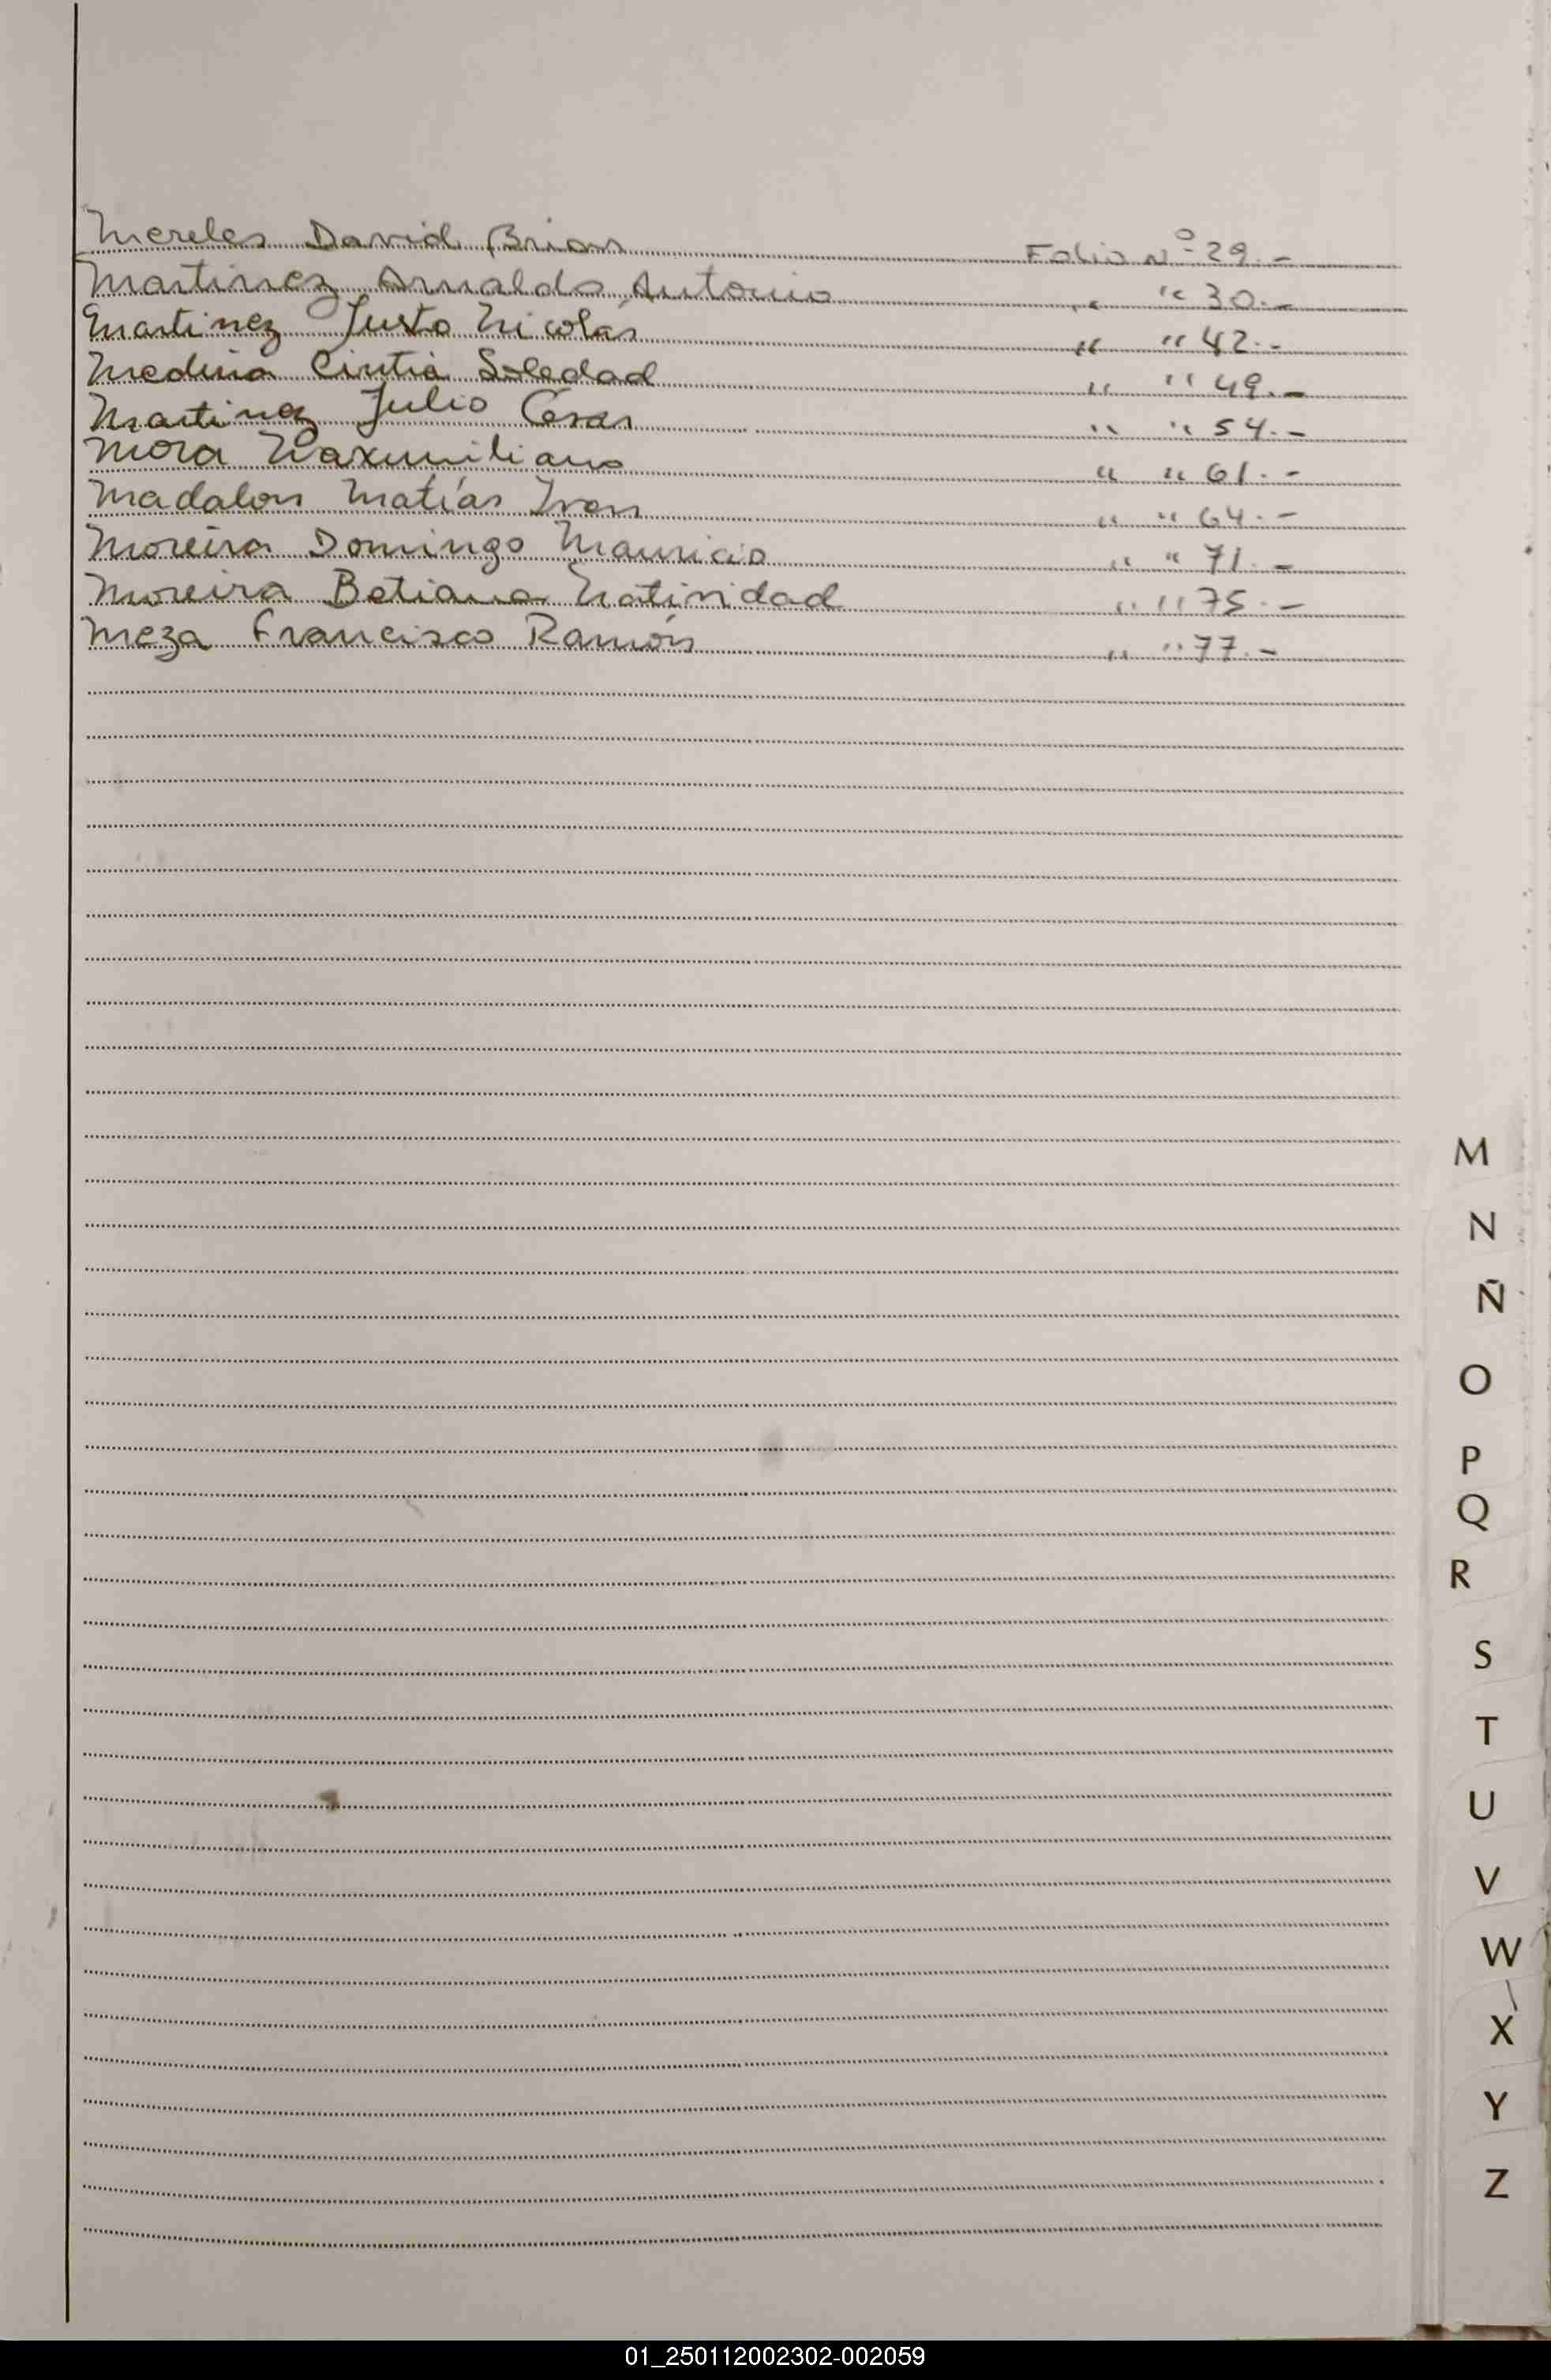 Mereles David Brian Folio Nº 29.-
Martinez Arnaldo Antonio " " 30.-
Martinez Justo Nicolás " " 42.-
Medina Cintia Soledad " " 49.-
Martinez Julio César " " 54.-
Mora Maxumiliano " " 61.-
Madalon Matías Ivan " " 64.-
Moreira Domingo Mauricio " " 71.-
Moreira Betiana Natividad " " 75.-
Meza Francisco Ramón " " 77.-
M
N
Ñ
O
P
Q
R
S
T
U
V
W
X
Y
Z
01_250112002302-002059